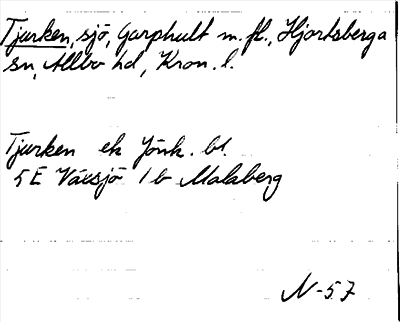 Tjurken, sjö, Garphult m.fl., Hjortsberga
sn, Allbo hd, Kron. l.
Tjurken ek Jönk. bl.
5E Växsjö 1b Malaberg
N-57